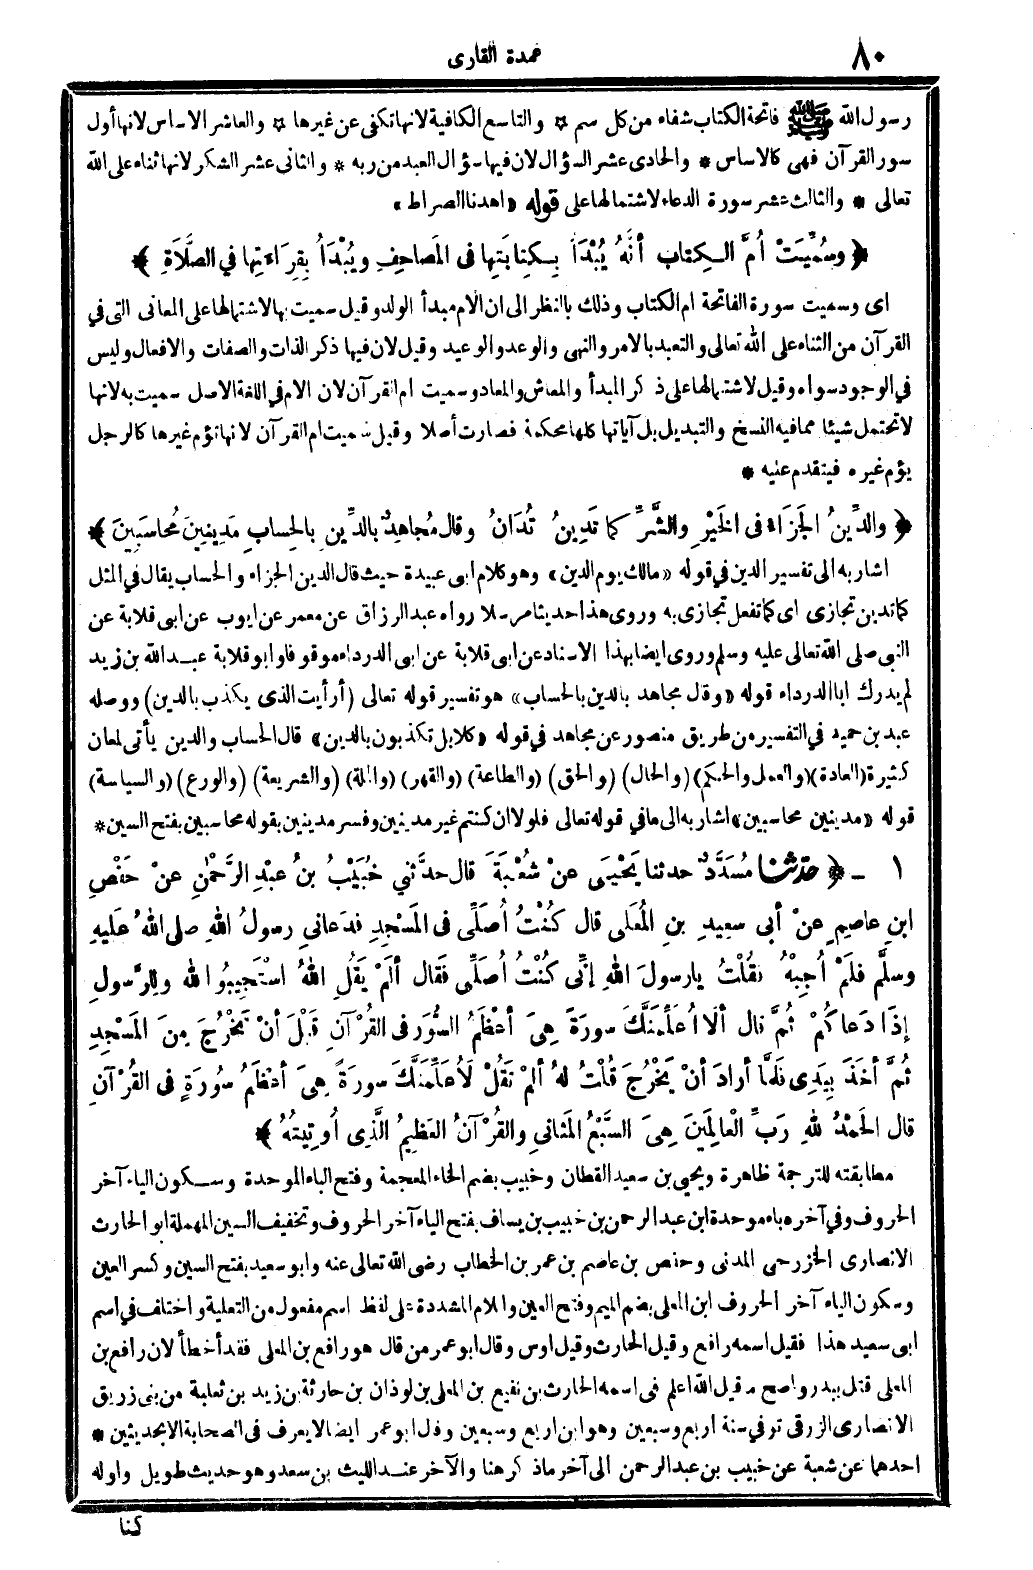 ٨٠
عمدة القارى
رسول الله ﷺ فاتحة الكتاب شفاء من كل سم * والتاسع الكافية لانها تكفى عن غيرها * والعاشر الاساس لانها أول
سور القرآن فهى كالاساس * والحادى عشر السؤال لان فيها سؤال العبد من ربه * والثانى عشر الشكر لانها ثناء على الله
تعالى * والثالث عشر سورة الدعاء لاشتمالها على قوله «اهدنا الصراط»
﴿ وسُمِّيَتْ أُمَّ الكِتابِ أنَّهُ يُبْدَأُ بِكِتابَتِها فى المَصاحِفِ ويُبْدَأُ بِقِرَاءَتِها في الصَّلَاةِ ﴾
اى وسميت سورة الفاتحة ام الكتاب وذلك بالنظر الى ان الام مبدأ الولد وقيل سميت بها لاشتمالها على المعانى التى في
القرآن من الثناء على الله تعالى والتعبد بالامر والنهى والوعد والوعيد وقيل لان فيها ذكر الذات والصفات والافعال وليس
في الوجود سواه وقيل لاشتمالها على ذكر المبدأ والمعاش والمعاد وسميت ام القرآن لان الام في اللغة الاصل سميت به لانها
لا تحتمل شيئا مما فيه النسخ والتبديل بل آياتها كلها محكمة فصارت أصلا وقيل سميت ام القرآن لانها تؤم غيرها كالرجل
يؤم غيره فيتقدم عليه *
﴿ والدِّينُ الجَزَاءُ فى الخَيْرِ والشَّرِّ كما تَدِينُ تُدَانُ وقال مُجاهِدٌ بالدِّينِ بالحِسابِ مَدِينِينَ مُحاسَبِينَ ﴾
اشار به الى تفسير الدين في قوله «مالك يوم الدين» وهو كلام ابى عبيدة حيث قال الدين الجزاء والحساب يقال في المثل
كما تدين تجازى اى كما تفعل تجازى به وروى هذا حديثا مرسلا رواه عبد الرزاق عن معمر عن ايوب عن ابى قلابة عن
النبى صلى الله تعالى عليه وسلم وروى ايضا بهذا الاسناد عن ابى قلابة عن ابى الدرداء موقوفا وابو قلابة عبد الله بن زيد
لم يدرك ابا الدرداء قوله «وقال مجاهد بالدين بالحساب» هو تفسير قوله تعالى (أرأيت الذى يكذب بالدين) ووصله
عبد بن حميد في التفسير من طريق منصور عن مجاهد في قوله «كلا بل تكذبون بالدين» قال الحساب والدين يأتى لمعان
كثيرة (العادة) (والعمل والحكم) (والحال) (والحق) (والطاعة) (والقهر) (والملة) (والشريعة) (والورع) (والسياسة)
قوله «مدينين محاسبين» اشار به الى ما في قوله تعالى فلولا ان كنتم غير مدينين وفسر مدينين بقوله محاسبين بفتح السين *
١ - ﴿ حَدَّثَنَا مُسَدَّدٌ حدثنا يَحْيَى عنْ شُعْبَةَ قال حدَّثني خُبَيْبُ بنُ عبْدِ الرَّحْمٰنِ عنْ حَفْصِ
ابنِ عاصِمٍ عنْ أبي سعِيدِ بنِ المُعَلى قال كُنْتُ أُصَلِّى فى المَسْجِدِ فدَعاني رسولُ اللهِ صلى اللهُ عَليهِ
وسلَّم فلَمْ أُجِبْهُ فقُلْتُ يارسولَ اللهِ إنِّى كُنْتُ أُصَلِّى فَقال ألَمْ يَقُلِ اللهُ اسْتَجِيبُوا لله ولِلرَّسولِ
إذَا دَعاكُمْ ثُمَّ قال ألَا أُعَلِّمَنَّكَ سورَةً هِىَ أعْظَمُ السُّوَرِ فى القُرْآنِ قَبْلَ أنْ تَخْرُجَ مِنَ المَسْجِدِ
ثُمَّ أخَذَ بِيَدِى فَلَمَّا أرادَ أنْ يَخْرُجَ قُلْتُ لهُ ألَمْ تَقُلْ لَأُعَلِّمَنَّكَ سورَةً هِىَ أعْظَمُ سُورَةٍ فى القُرْآنِ
قال الحَمْدُ للهِ رَبِّ الْعالَمِينَ هِىَ السَّبْعُ المَثانِى والقُرْآنُ العَظِيمُ الَّذِى أُوتِيتُهُ ﴾
مطابقته للترجمة ظاهرة ويحيى بن سعيد القطان وخبيب بضم الخاء المعجمة وفتح الباء الموحدة وسكون الياء آخر
الحروف وفي آخره باء موحدة ابن عبد الرحمن بن خبيب بن يساف بفتح الياء آخر الحروف وتخفيف السين المهملة ابو الحارث
الانصارى الخزرجى المدنى وحفص بن عاصم بن عمر بن الخطاب رضى الله تعالى عنه وابو سعيد بفتح السين وكسر العين
وسكون الياء آخر الحروف ابن المعلى بضم الميم وفتح العين واللام المشددة على لفظ اسم مفعول من التعلية واختلف في اسم
ابى سعيد هذا فقيل اسمه رافع وقيل الحارث وقيل اوس وقال ابو عمر من قال هو رافع بن المعلى فقد أخطأ لان رافع بن
المعلى قتل ببدر واصح ما قيل الله اعلم فى اسمه الحارث بن نفيع بن المعلى بن لوذان بن حارثة بن زيد بن ثعلبة من بنى زريق
الانصارى الزرقى توفي سنة اربع وسبعين وهو ابن اربع وسبعين وقال ابو عمر ايضا لا يعرف فى الصحابة الا بحديثين *
احدهما عن شعبة عن خبيب بن عبد الرحمن الى آخر ماذكر هنا والآخر عند الليث بن سعد وهو حديث طويل واوله
كنا